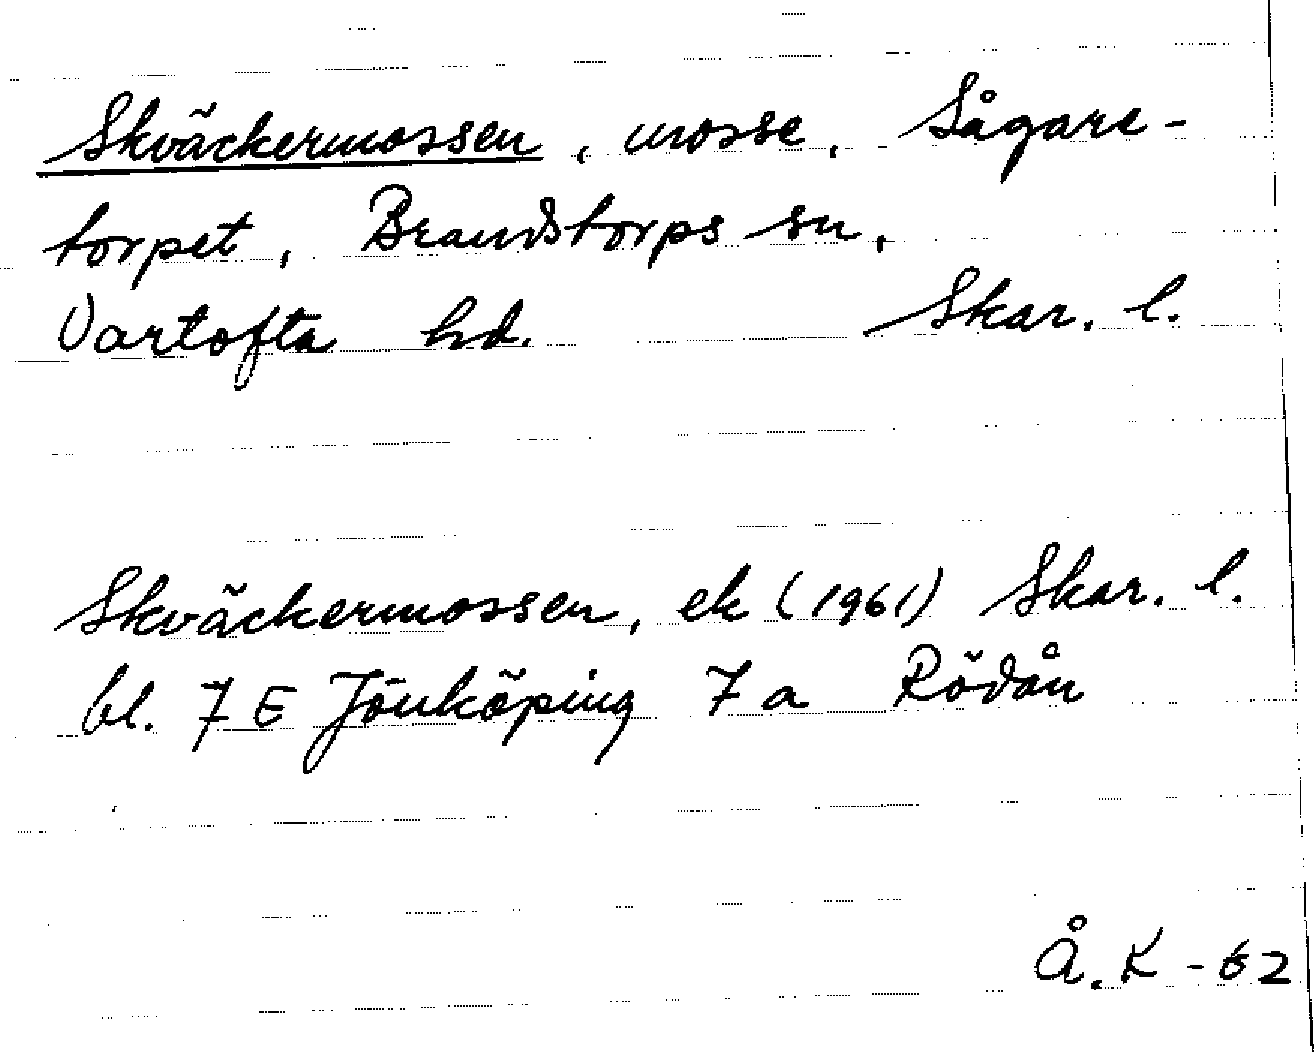 Skväckermossen, mosse, Sågare-
torpet, Brandstorps sn,
Vartofta hd. Skar. l.
Skväckermossen, ek (1961) Skar. l.
bl. 7 E Jönköping 7 a Rödån
Å. K - 62